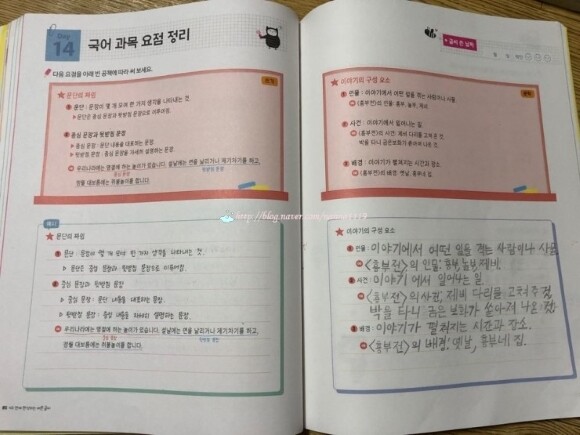 Day
14
국어 과목 요점 정리
다음 요점을 아래 빈 공책에 따라 써 보세요.
★ 문단의 짜임
❶ 문단 : 문장이 몇 개 모여 한 가지 생각을 나타내는 것.
▶ 문단은 중심 문장과 뒷받침 문장으로 이루어짐.
❷ 중심 문장과 뒷받침 문장
▶ 중심 문장 : 문단 내용을 대표하는 문장.
▶ 뒷받침 문장 : 중심 문장을 자세히 설명하는 문장.
우리나라에는 명절에 하는 놀이가 있습니다. 설날에는 연을 날리거나 제기차기를 하고,
중심 문장
뒷받침 문장
정월 대보름에는 쥐불놀이를 합니다.
★ 문단의 짜임
❶ 문단 : 문장이 몇 개 모여 한 가지 생각을 나타내는 것.
▶ 문단은 중심 문장과 뒷받침 문장으로 이루어짐.
❷ 중심 문장과 뒷받침 문장
▶ 중심 문장 : 문단 내용을 대표하는 문장.
▶ 뒷받침 문장 : 중심 문장을 자세히 설명하는 문장.
우리나라에는 명절에 하는 놀이가 있습니다. 설날에는 연을 날리거나 제기차기를 하고,
중심 문장
뒷받침 문장
정월 대보름에는 쥐불놀이를 합니다.
글씨 쓴 날짜
월 일
★ 이야기의 구성 요소
❶ 인물 : 이야기에서 어떤 일을 겪는 사람이나 사물.
〈흥부전〉의 인물: 흥부, 놀부, 제비.
❷ 사건 : 이야기에서 일어나는 일.
〈흥부전〉의 사건: 제비 다리를 고쳐 준 것,
박을 타니 금은보화가 쏟아져 나온 것.
❸ 배경 : 이야기가 펼쳐지는 시간과 장소.
〈흥부전〉의 배경: 옛날, 흥부네 집.
★ 이야기의 구성 요소
❶ 인물: 이야기에서 어떤 일을 겪는 사람이나 사물.
〈흥부전〉의 인물: 흥부, 놀부, 제비.
❷ 사건: 이야기에서 일어나는 일.
〈흥부전〉의 사건: 제비 다리를 고쳐 준 것,
박을 타니 금은보화가 쏟아져 나온 것.
❸ 배경: 이야기가 펼쳐지는 시간과 장소.
〈흥부전〉의 배경: 옛날, 흥부네 집.